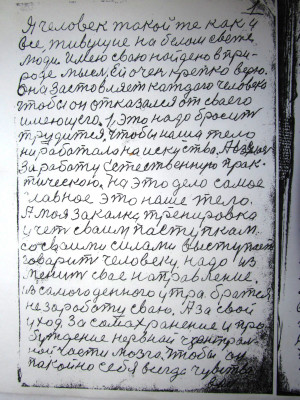 1
Я человек такой те как и
все живущие на белом свете
люди. Имею сваю найдено в при-
роде мысл. Ей очен крепко верю.
Она заставляет каждого человека
чтобы он отказался от своего
имеющего. 1. Это надо бросить
трудится, чтобы наше тело
ни работало на искуства. А взялось
за работу естественную прак-
тическою. На это дело самое
главное это наше тело.
А моя закалка тренировка
учет сваим паступкам.
со сваими силами выступает
говорит человеку надо из
менит свае направление.
из самого денного утра братся
не за работу сваю. А за свой
уход за сохранение и про
бутдение нервной централ
ной части мозга. Чтобы он
пакойно себя всегда чувство